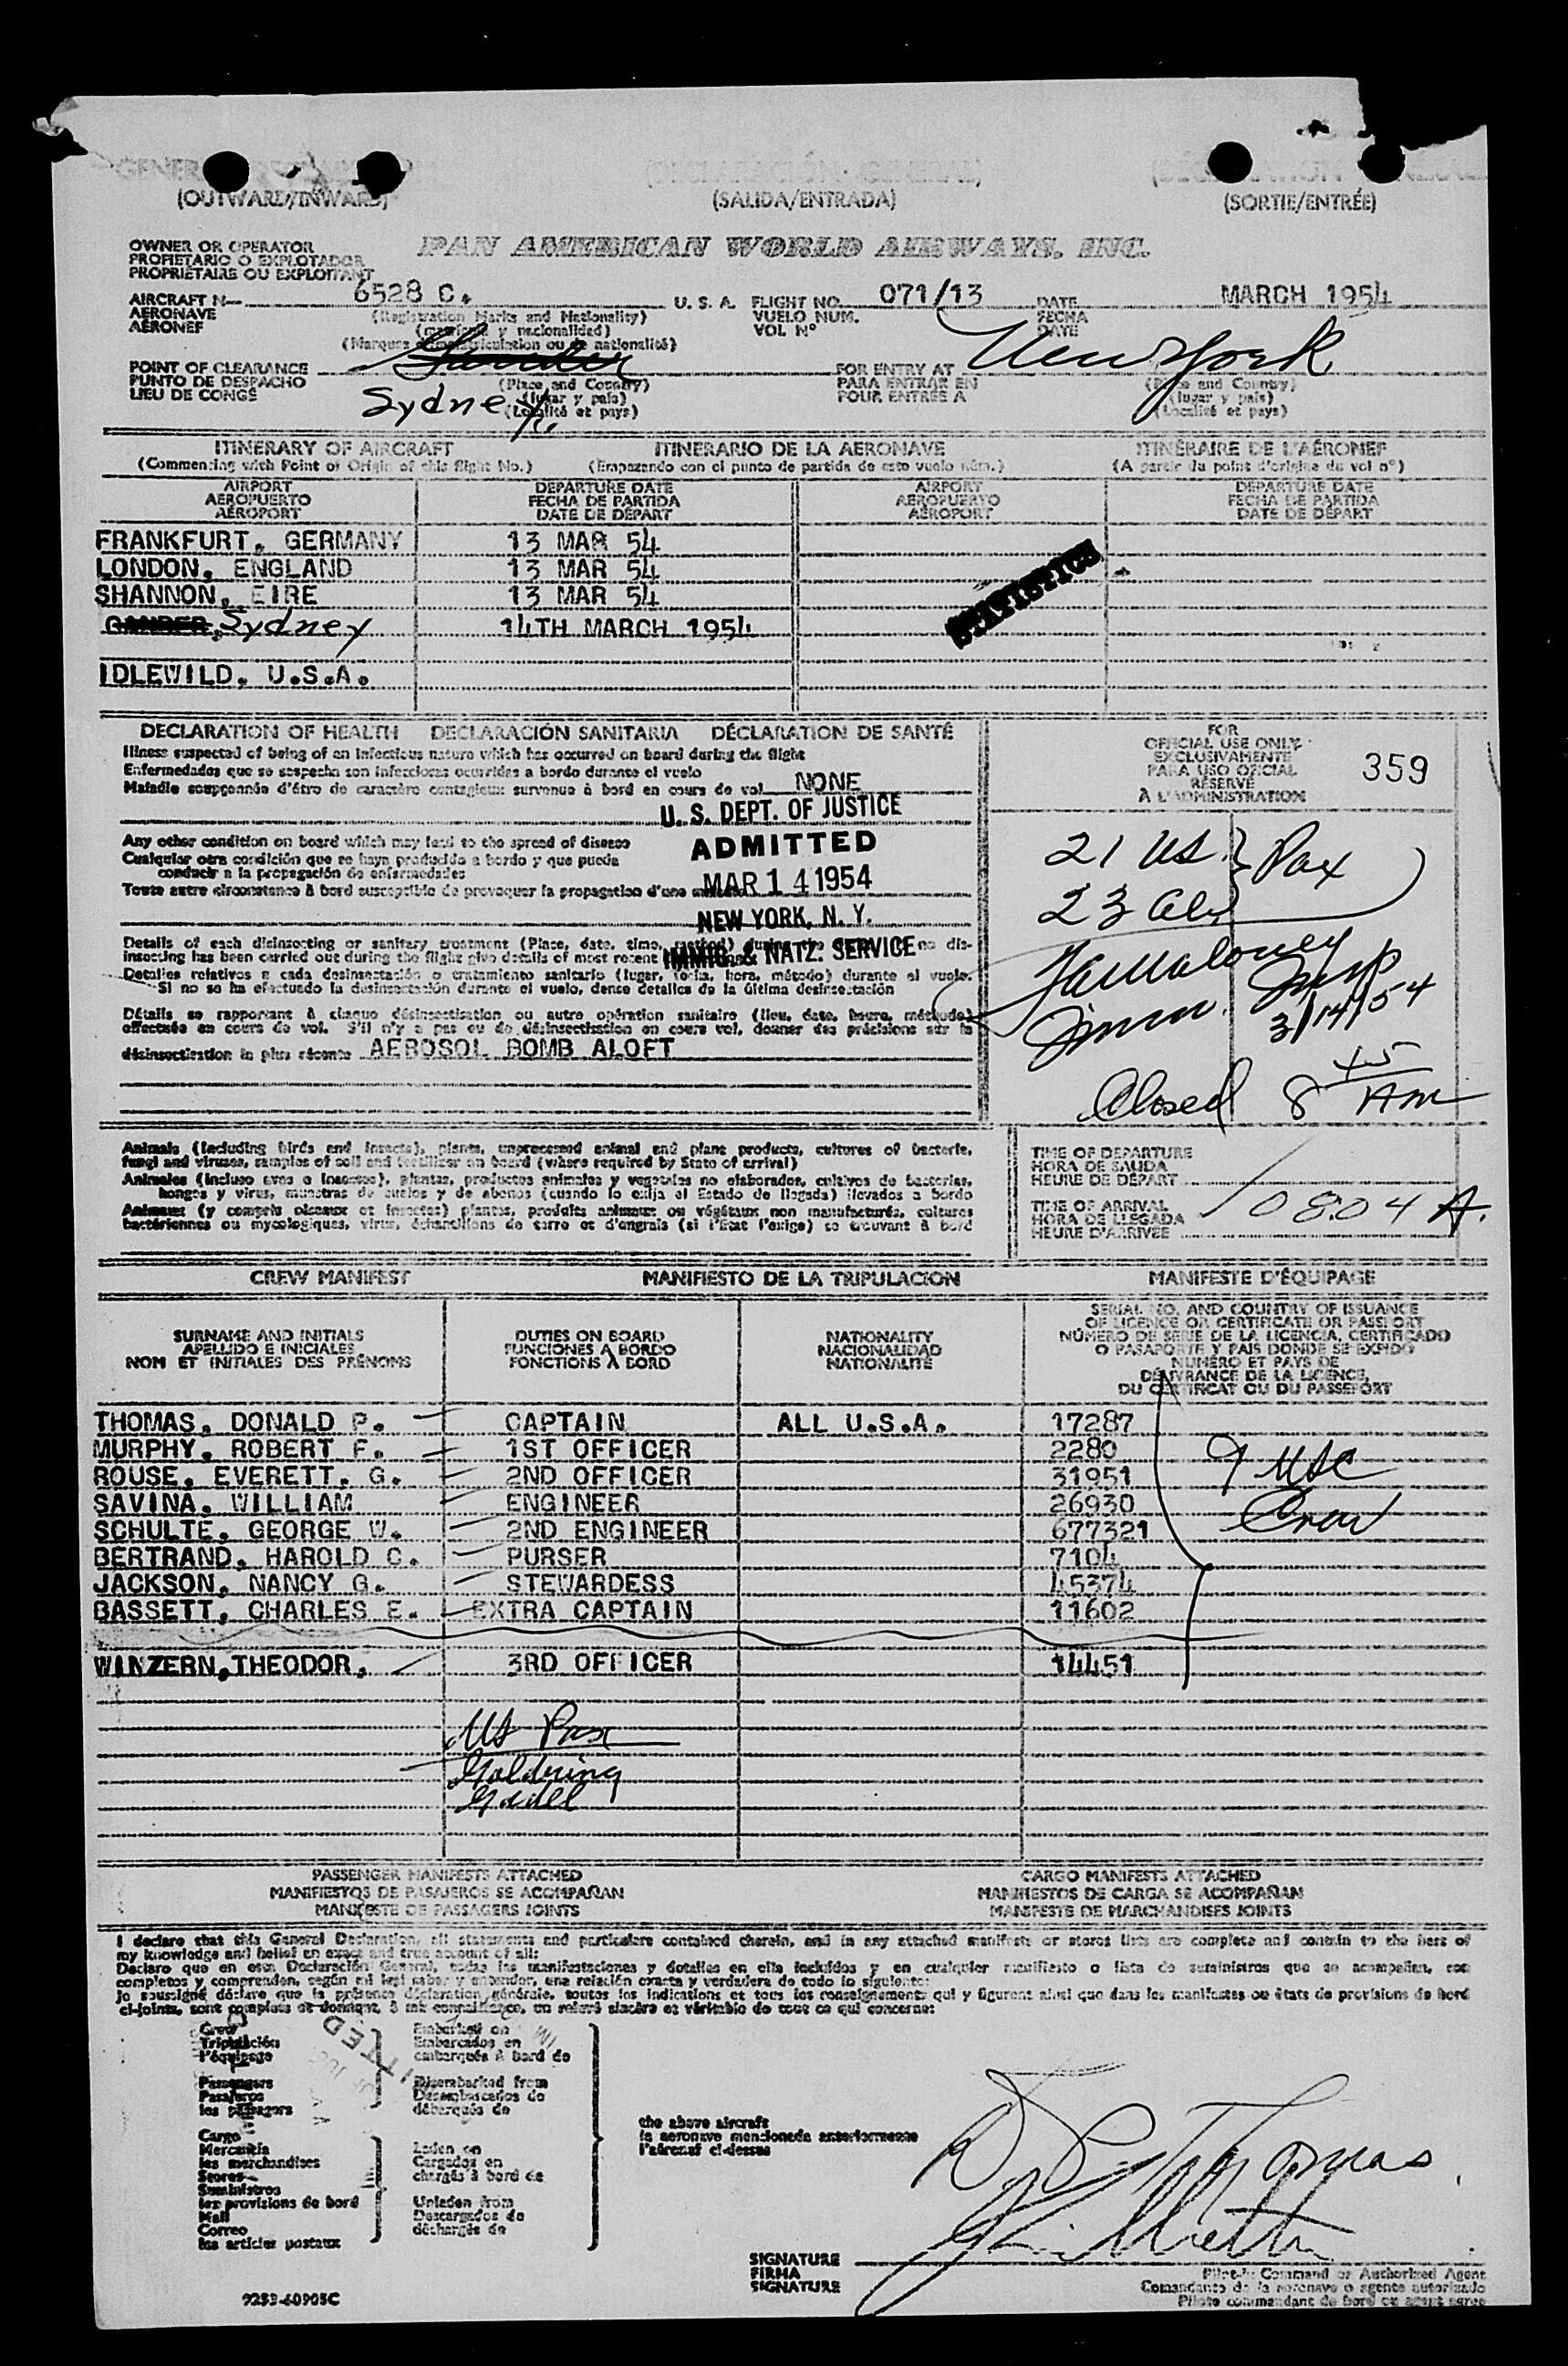 (OUTWARD/INWARD) (SALIDA/ENTRADA) (SORTIE/ENTRÉE)
OWNER OR OPERATOR
PROPIETARIO O EXPLOTADOR
PROPRIÉTAIRE OU EXPLOITANT
PAN AMERICAN WORLD AIRWAYS, INC.
AIRCRAFT N— 6528 C. U. S. A. FLIGHT NO. 071/13 DATE MARCH 1954
AERONAVE (Registration Marks and Nationality) VUELO NUM. FECHA
AÉRONEF (matrícula y nacionalidad) VOL Nº DATE
(Marques d'immatriculation ou de nationalité)
POINT OF CLEARANCE FOR ENTRY AT New York
PUNTO DE DESPACHO (Place and Country) PARA ENTRAR EN (Place and Country)
LIEU DE CONGÉ Sydney (lugar y país) POUR ENTRÉE A (lugar y país)
(Localité et pays) (Localité et pays)
ITINERARY OF AIRCRAFT ITINERARIO DE LA AERONAVE ITINÉRAIRE DE L'AÉRONEF
(Commencing with Point of Origin of this flight No.) (Empezando con el punto de partida de este vuelo núm.) (A partir du point d'origine du vol nº)
AIRPORT DEPARTURE DATE AIRPORT DEPARTURE DATE
AEROPUERTO FECHA DE PARTIDA AEROPUERTO FECHA DE PARTIDA
AÉROPORT DATE DE DÉPART AÉROPORT DATE DE DÉPART
FRANKFURT, GERMANY 13 MAR 54
LONDON, ENGLAND 13 MAR 54
SHANNON, EIRE 13 MAR 54
STATISTICS
GANDER, Sydney 14TH MARCH 1954
IDLEWILD, U.S.A.
DECLARATION OF HEALTH DECLARACIÓN SANITARIA DÉCLARATION DE SANTÉ
Illness suspected of being of an infectious nature which has occurred on board during the flight
Enfermedades que se sospecha son infecciosas ocurridas a bordo durante el vuelo
Maladie soupçonnée d'être de caractère contagieux survenue à bord en cours de vol NONE
U. S. DEPT. OF JUSTICE
ADMITTED
MAR 14 1954
NEW YORK, N. Y.
IMMIG. & NATZ. SERVICE
Any other condition on board which may lead to the spread of disease
Cualquier otra condición que se haya producido a bordo y que pueda
conducir a la propagación de enfermedades
Toute autre circonstance à bord susceptible de provoquer la propagation d'une
Details of each disinsecting or sanitary treatment (Place, date, time, method) during the flight. If no dis-
insecting has been carried out during the flight give details of most recent
Detalles relativos a cada desinsectación o tratamiento sanitario (lugar, fecha, hora, método) durante el vuelo.
Si no se ha efectuado la desinsectación durante el vuelo, dense detalles de la última desinsectación
Détails se rapportant à chaque désinsectisation ou autre opération sanitaire (lieu, date, heure, méthode)
effectuée en cours de vol. S'il n'y a pas eu de désinsectisation en cours vol, donner des précisions sur la
désinsectisation la plus récente AEROSOL BOMB ALOFT
FOR
OFFICIAL USE ONLY
EXCLUSIVAMENTE
PARA USO OFICIAL
RÉSERVÉ
À L'ADMINISTRATION
359
21 US. } Pax
23 Al
Immn. Insp
3/14/54
Closed 8 45 AM
Animals (including birds and insects), plants, unprocessed animal and plant products, cultures of bacteria,
fungi and viruses, samples of soil and fertilizer on board (where required by State of arrival)
Animales (incluso aves e insectos), plantas, productos animales y vegetales no elaborados, cultivos de bacterias,
hongos y virus, muestras de suelos y de abonos (cuando lo exija el Estado de llegada) llevados a bordo
Animaux (y compris oiseaux et insectes) plantes, produits animaux ou végétaux non manufacturés, cultures
bactériennes ou mycologiques, virus, échantillons de terre et d'engrais (si l'État l'exige) se trouvant à bord
TIME OF DEPARTURE
HORA DE SALIDA
HEURE DE DÉPART
TIME OF ARRIVAL
HORA DE LLEGADA
HEURE D'ARRIVÉE
0804 A.
CREW MANIFEST MANIFIESTO DE LA TRIPULACION MANIFESTE D'ÉQUIPAGE
SURNAME AND INITIALS
APELLIDO E INICIALES
NOM ET INITIALES DES PRÉNOMS
DUTIES ON BOARD
FUNCIONES A BORDO
FONCTIONS À BORD
NATIONALITY
NACIONALIDAD
NATIONALITÉ
SERIAL NO. AND COUNTRY OF ISSUANCE
OF LICENCE OR CERTIFICATE OR PASSPORT
NÚMERO DE SERIE DE LA LICENCIA, CERTIFICADO
O PASAPORTE Y PAIS DONDE SE EXPIDIO
NUMÉRO ET PAYS DE
DÉLIVRANCE DE LA LICENCE,
DU CERTIFICAT OU DU PASSEPORT
THOMAS, DONALD P. CAPTAIN ALL U.S.A. 17287
MURPHY, ROBERT F. 1ST OFFICER 2280
ROUSE, EVERETT, G. 2ND OFFICER 31951
SAVINA, WILLIAM ENGINEER 26930
SCHULTE, GEORGE W. 2ND ENGINEER 677321
BERTRAND, HAROLD C. PURSER 7104
JACKSON, NANCY G. STEWARDESS 45374
BASSETT, CHARLES E. EXTRA CAPTAIN 11602
WINZERN,THEODOR. 3RD OFFICER 14451
9 USC
Crew
US Pax
Goldring
PASSENGER MANIFESTS ATTACHED CARGO MANIFESTS ATTACHED
MANIFIESTOS DE PASAJEROS SE ACOMPAÑAN MANIFIESTOS DE CARGA SE ACOMPAÑAN
MANIFESTE DE PASSAGERS JOINTS MANIFESTE DE MARCHANDISES JOINTS
I declare that this General Declaration, all statements and particulars contained therein, and in any attached manifests or stores lists are complete and contain to the best of
my knowledge and belief an exact and true account of all:
Declaro que en esta Declaración General, todas las manifestaciones y detalles en ella incluidos y en cualquier manifiesto o lista de suministros que se acompañan, son
completos y comprenden, según mi leal saber y entender, una relación exacta y verdadera de todo lo siguiente:
Je soussigné déclare que la présente déclaration générale, toutes les indications et tous les renseignements qui y figurent ainsi que dans les manifestes ou états de provisions de bord
ci-joints, sont complets et donnent, à ma connaissance, un relevé sincère et véritable de tout ce qui concerne:
Crew
Tripulación
l'équipage
Embarked on
Embarcados en
embarqués à bord de
Passengers
Pasajeros
les passagers
Disembarked from
Desembarcados de
débarqués de
Cargo
Mercancía
les marchandises
Stores
Suministros
les provisions de bord
Mail
Correo
les articles postaux
Laden on
Cargados en
chargés à bord de
Unladen from
Descargados de
déchargés de
the above aircraft
la aeronave mencionada anteriormente
l'aéronef ci-dessus
D P Thomas
SIGNATURE
FIRMA
SIGNATURE
Pilot-in Command or Authorized Agent
Comandante de la aeronave o agente autorizado
Pilote commandant de bord ou agent agréé
9253-60905C